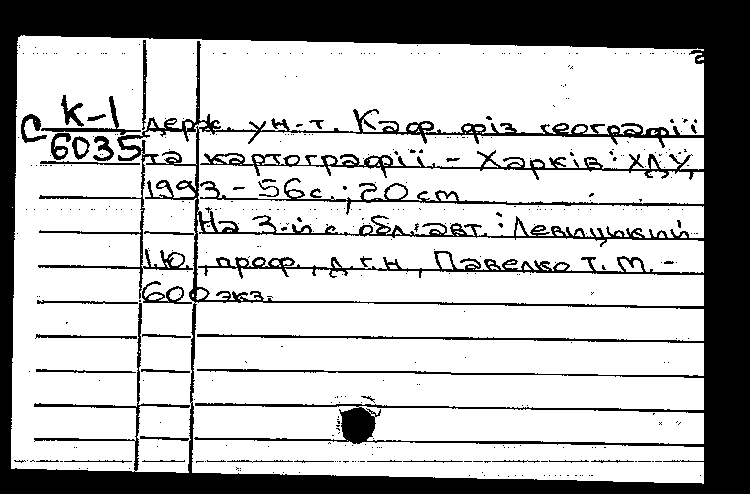 2
К-1
С 6035
держ. ун-т. Каф. фіз географії
та картографії. - Харків: ХДУ,
1993. - 56 с.; 20 cm
На 3-й с. обл.: авт.: Левицький
І.Ю., проф., д.г.н, Павелко Т.М. -
600 экз.